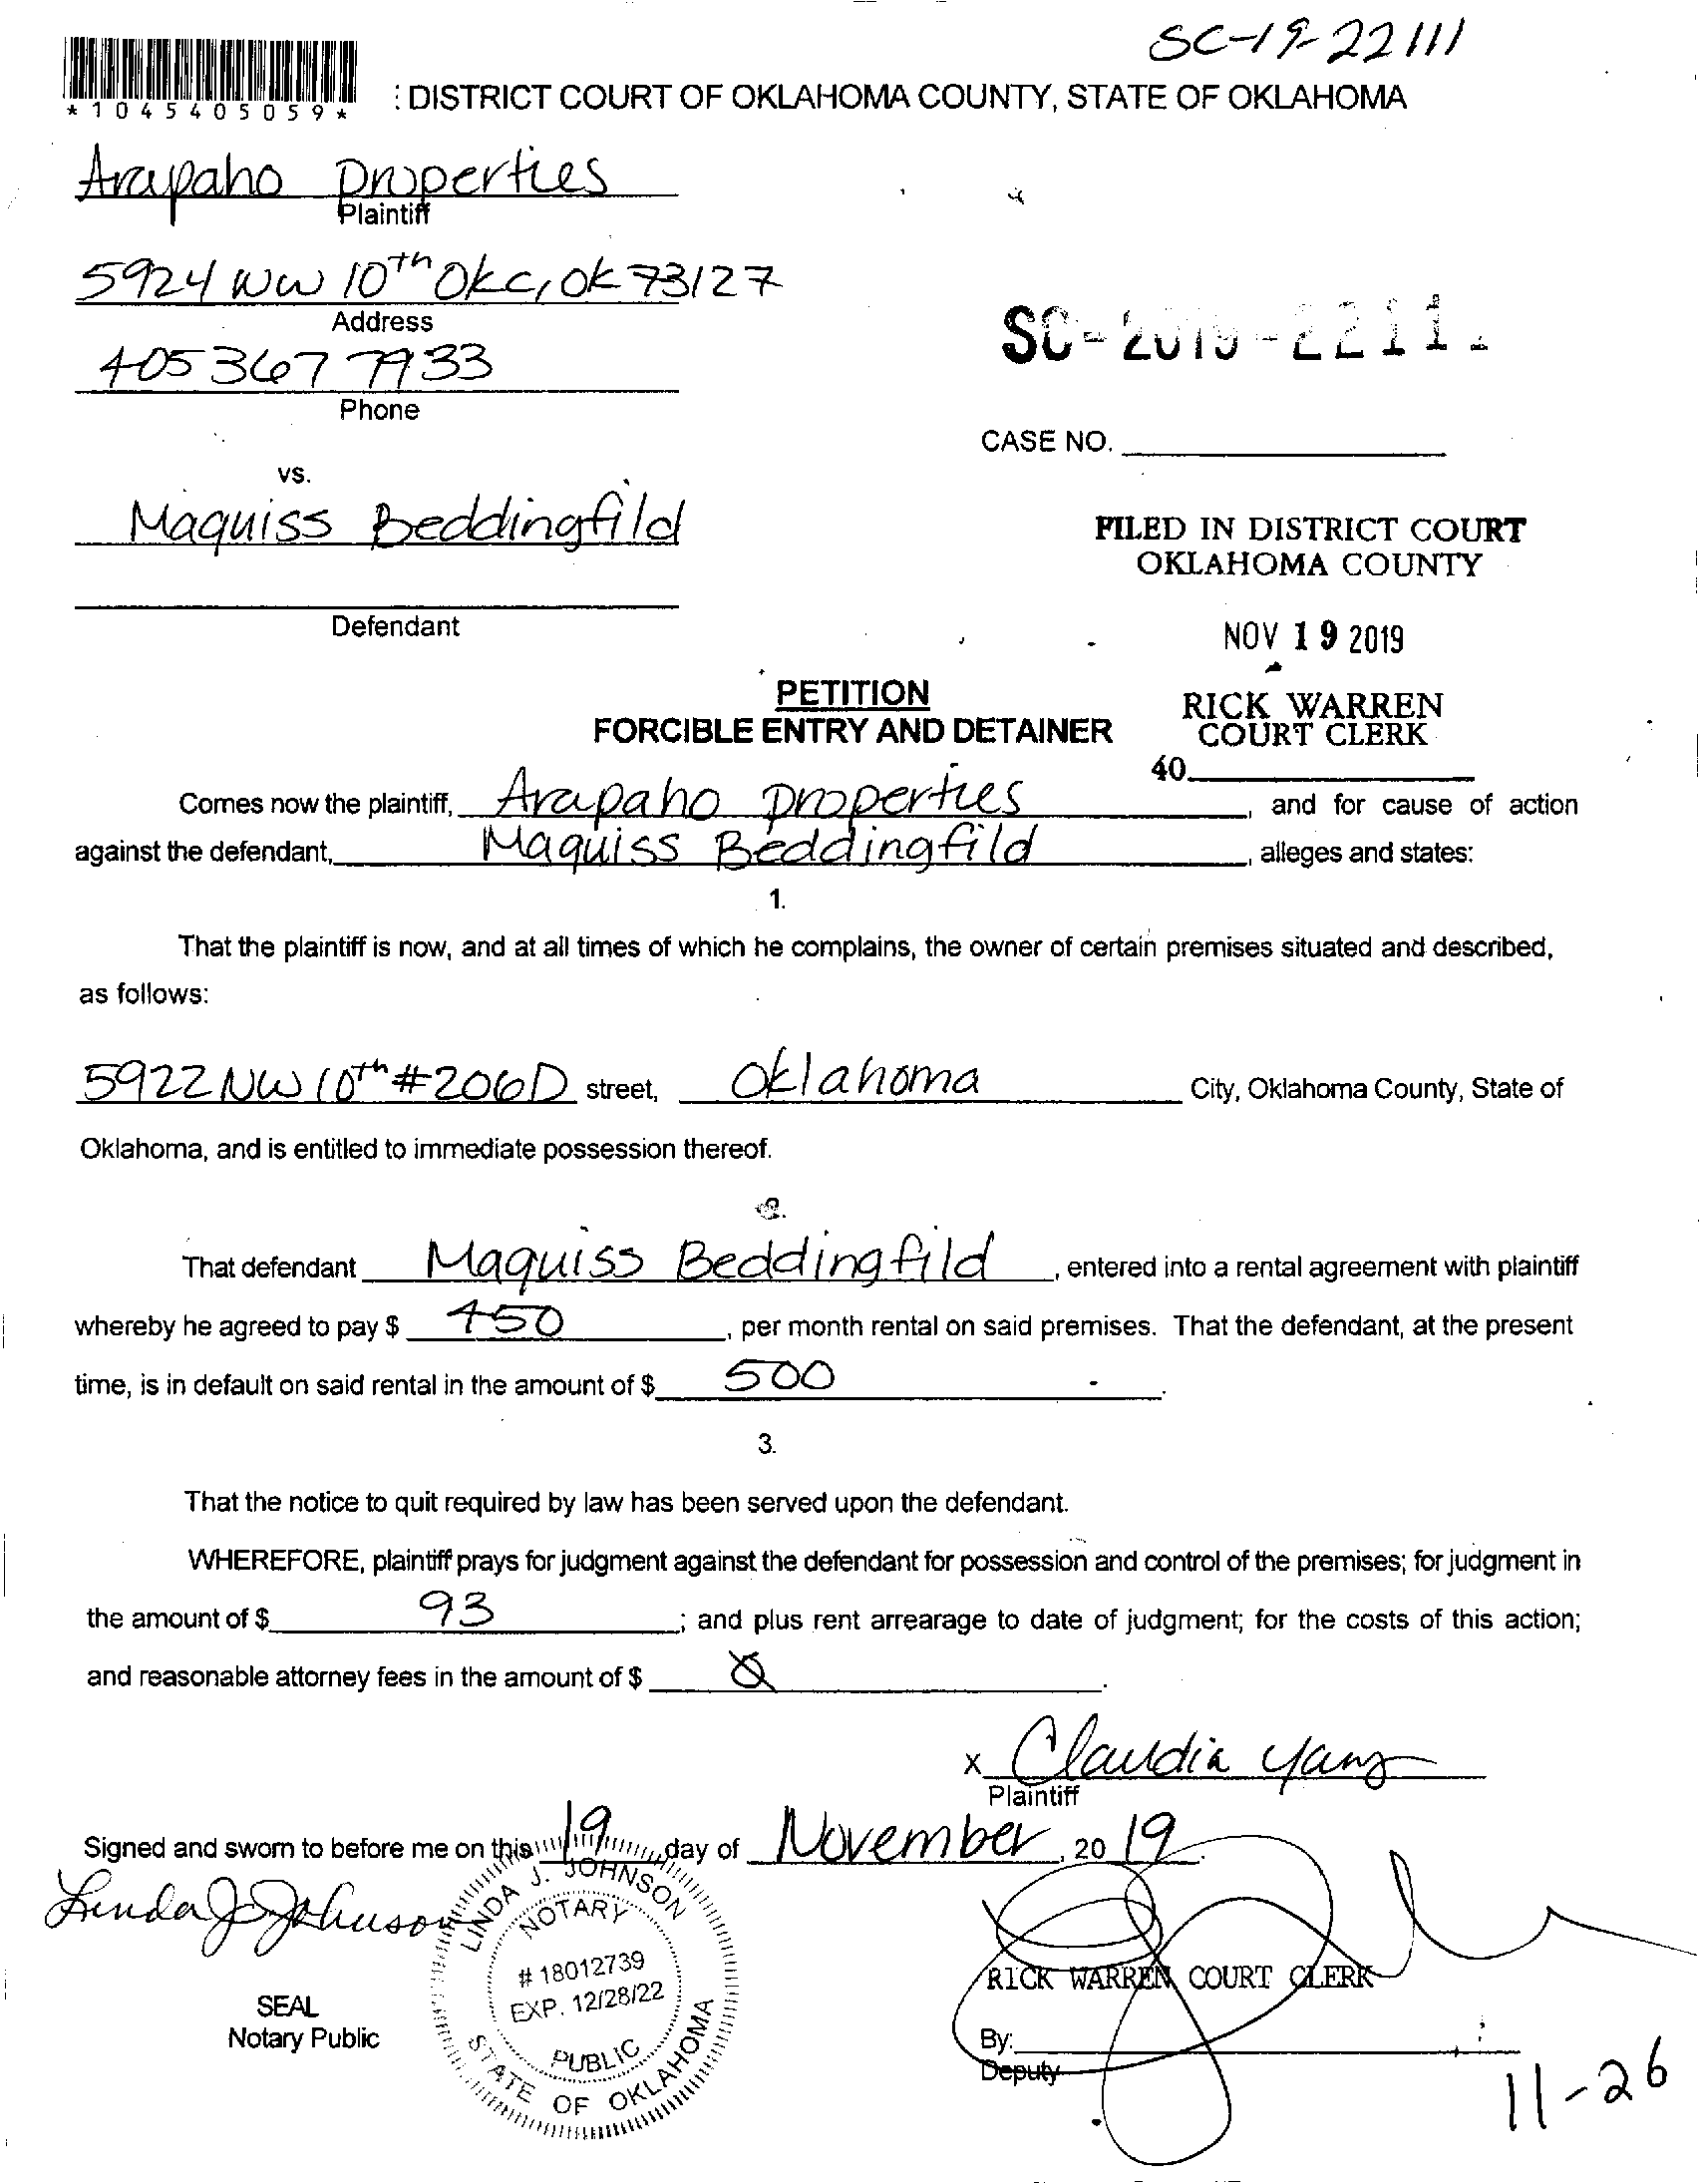 SC-19-22111
*1045405059*
: DISTRICT COURT OF OKLAHOMA COUNTY, STATE OF OKLAHOMA
Arapaho properties
Plaintiff
5924 NW 10th Okc, OK 73127
Address
405 367 7933
Phone
SC-2019-2211
CASE NO.
vs.
Maquiss Beddingfild
FILED IN DISTRICT COURT
OKLAHOMA COUNTY
Defendant
NOV 19 2019
PETITION
FORCIBLE ENTRY AND DETAINER
RICK WARREN
COURT CLERK
40
Comes now the plaintiff, Arapaho properties, and for cause of action
against the defendant, Maquiss Beddingfild, alleges and states:
1.
That the plaintiff is now, and at all times of which he complains, the owner of certain premises situated and described,
as follows:
5922 NW 10th #206D street, Oklahoma City, Oklahoma County, State of
Oklahoma, and is entitled to immediate possession thereof.
2.
That defendant Maquiss Beddingfild, entered into a rental agreement with plaintiff
whereby he agreed to pay $ 450, per month rental on said premises. That the defendant, at the present
time, is in default on said rental in the amount of $ 500.
3.
That the notice to quit required by law has been served upon the defendant.
WHEREFORE, plaintiff prays for judgment against the defendant for possession and control of the premises; for judgment in
the amount of $ 93; and plus rent arrearage to date of judgment; for the costs of this action;
and reasonable attorney fees in the amount of $ .
x Claudia Yang
Plaintiff
Signed and sworn to before me on this 19 day of November, 2019.
Linda J Johnson
LINDA J. JOHNSON
NOTARY
# 18012739
EXP. 12/28/22
PUBLIC
STATE OF OKLAHOMA
SEAL
Notary Public
RICK WARREN COURT CLERK
By:
Deputy
11-26